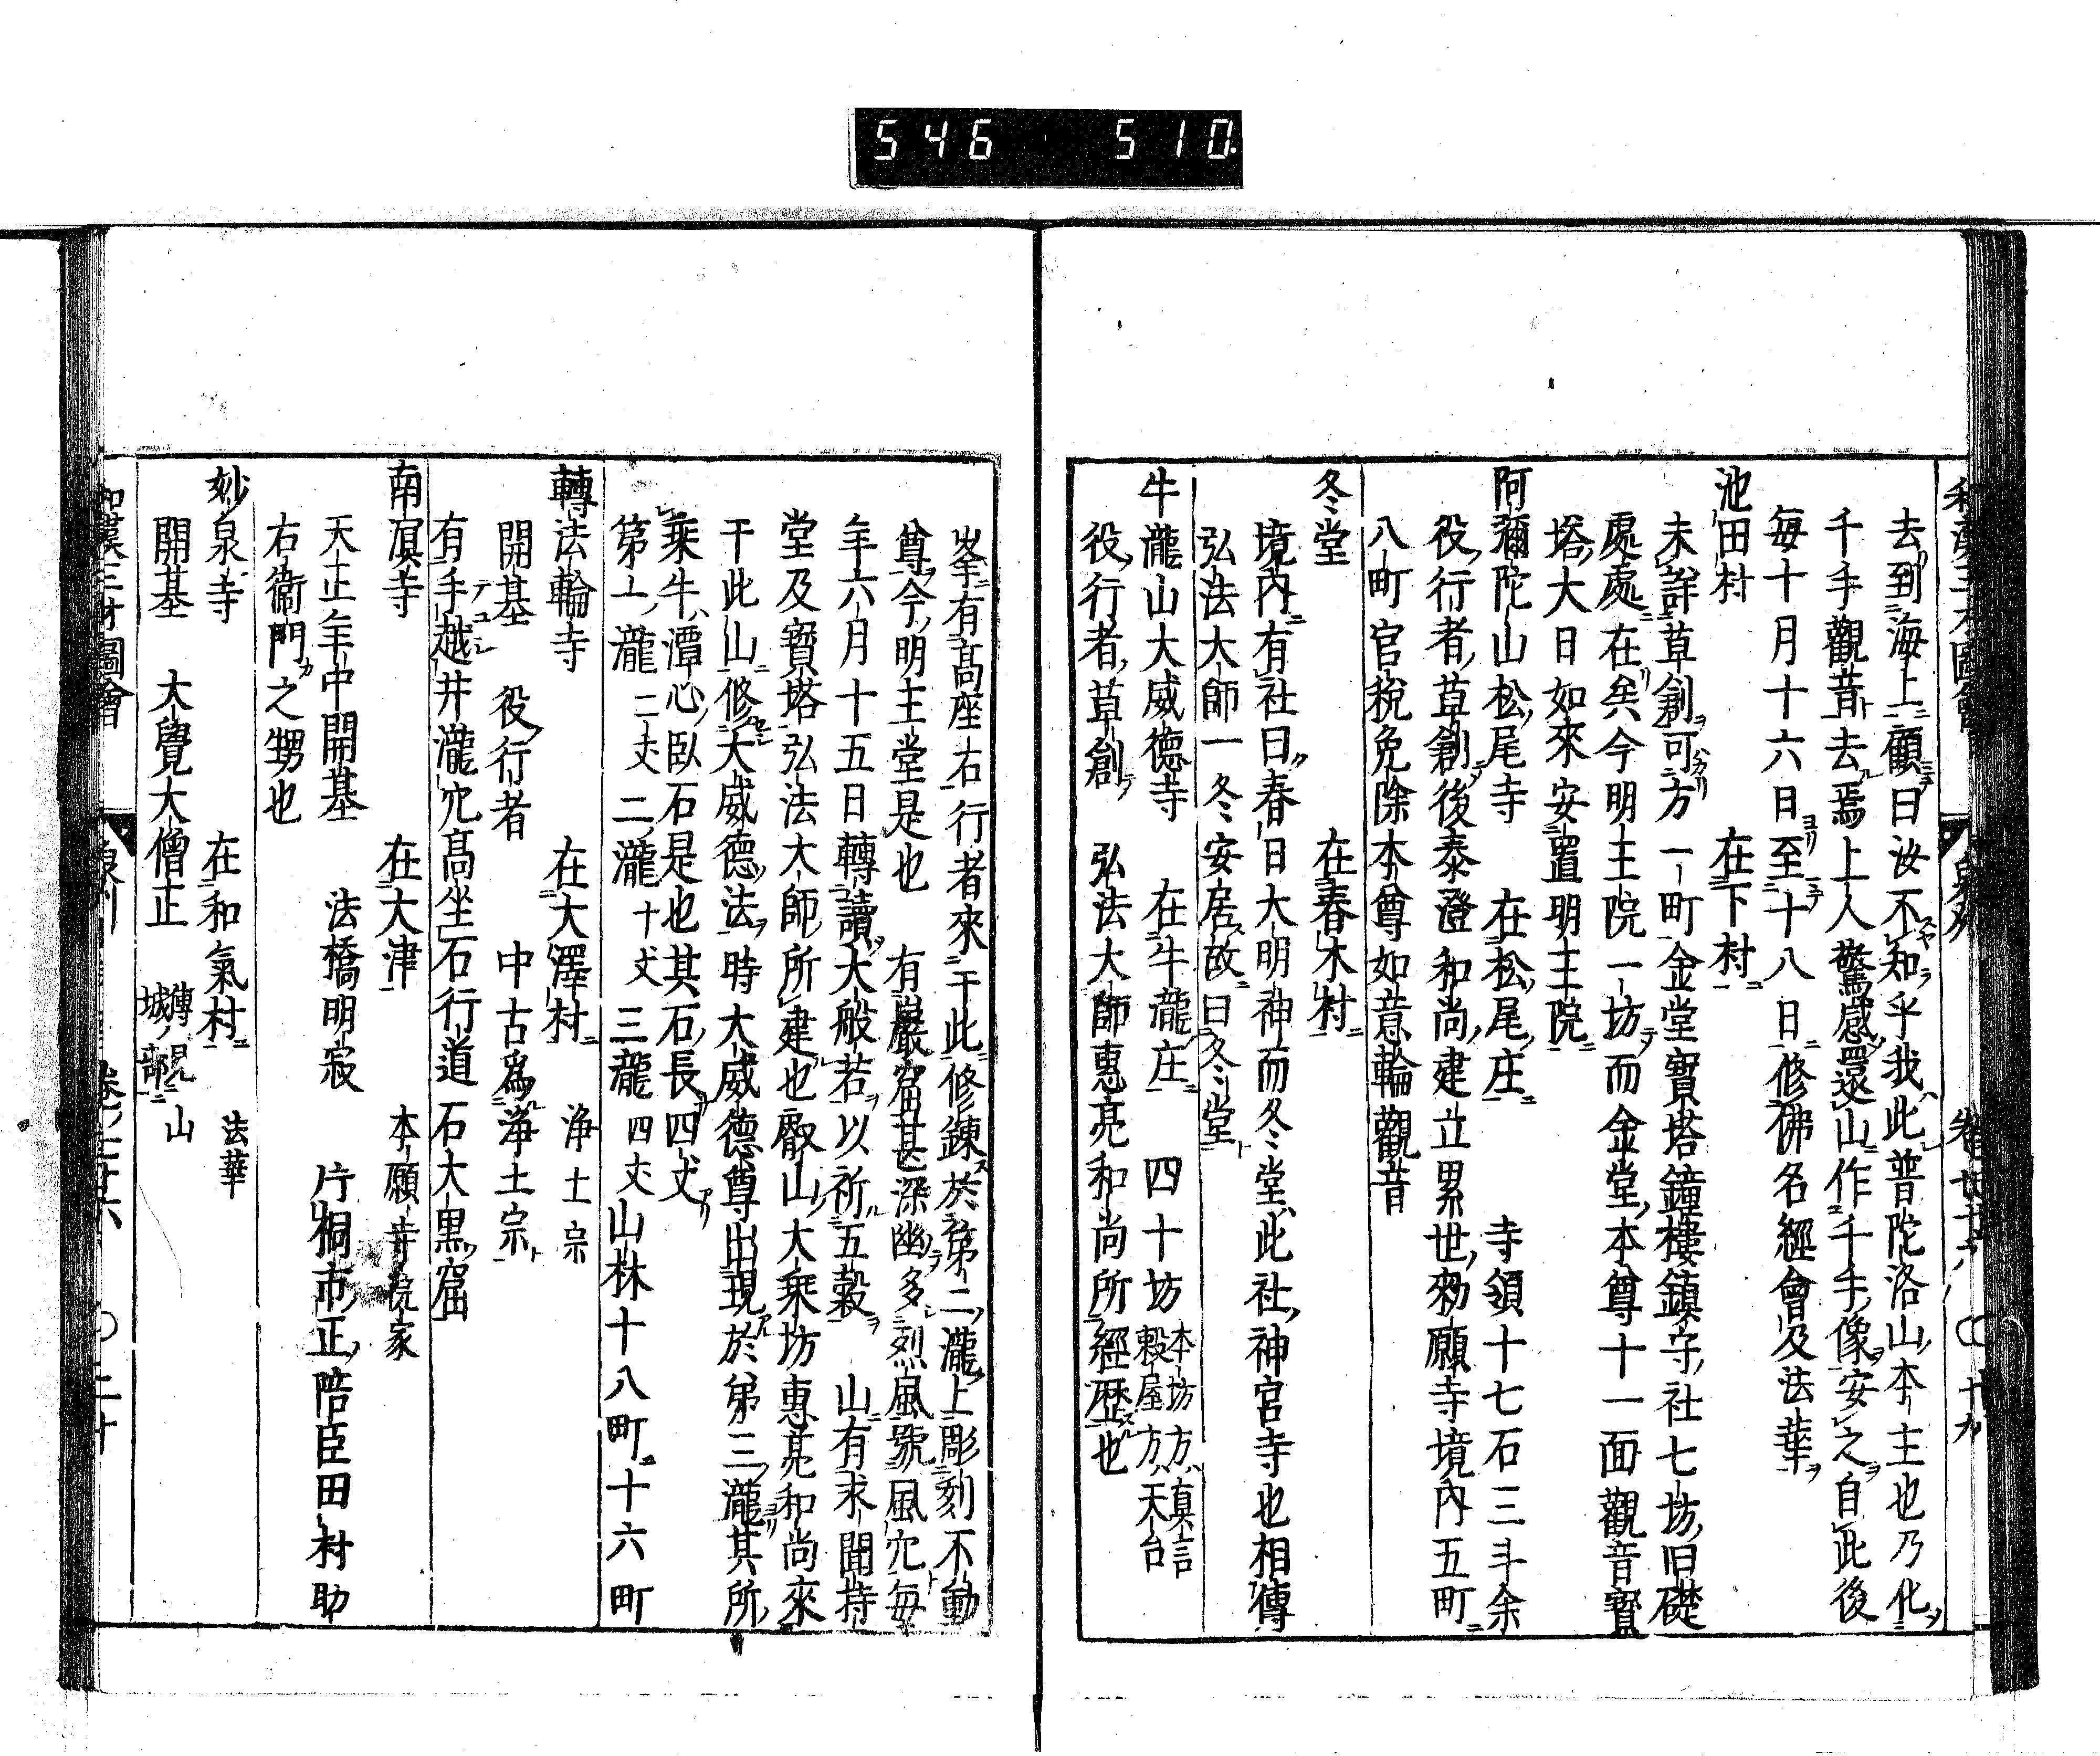 546 510
和漢三才圖會 泉州 卷七十六 ○十九
去到海上顧曰汝不知乎我此普陀洛山本主也乃化
千手觀音去焉上人驚感還山作千手像安之自此後
每十月十六日至十八日修佛名經會及法華
池田村 在下村
未詳草創可方一町金堂寳塔鐘樓鎮守社七坊旧礎
處處在矣今明王院一坊而金堂本尊十一面觀音寳
塔大日如來安置明王院
阿彌陀山松尾寺 在松尾庄 寺領十七石三斗余
役行者草創後泰澄和尚建立累世勅願寺境內五町
八町官稅免除本尊如意輪觀音
冬堂 在春木村
境內有社曰春日大明神而冬堂此社神宮寺也相傳
弘法大師一冬安居故曰冬堂
牛瀧山大威德寺 在牛瀧庄 四十坊 本坊方真言 穀屋方天台
役行者草創 弘法大師惠亮和尚所經歴也
峯有髙座石行者來于此修錬於第二瀧上彫刻不動
尊今明王堂是也 有巖窟甚深幽多烈風號風穴每
年六月十五日轉讀大般若以祈五穀 山有求聞持
堂及寳塔弘法大師所建也叡山大乗坊惠亮和尚來
于此山修大威德法時大威德尊出現於第三瀧其所
乗牛潭心臥石是也其石長四丈
第一瀧 二丈 二瀧 十丈 三瀧 四丈 山林十八町十六町
轉法輪寺 在大澤村 浄土宗
開基 役行者 中古爲浄土宗
有手越井瀧穴髙坐石行道石大黒窟
南溟寺 在大津 本願寺院家
天正年中開基 法橋明寂 片桐市正陪臣田村助
右衞門之甥也
妙泉寺 在和氣村 法華
開基 大覺大僧正 傳見城部山
和漢三才圖會 泉州 卷七十六 ○二十